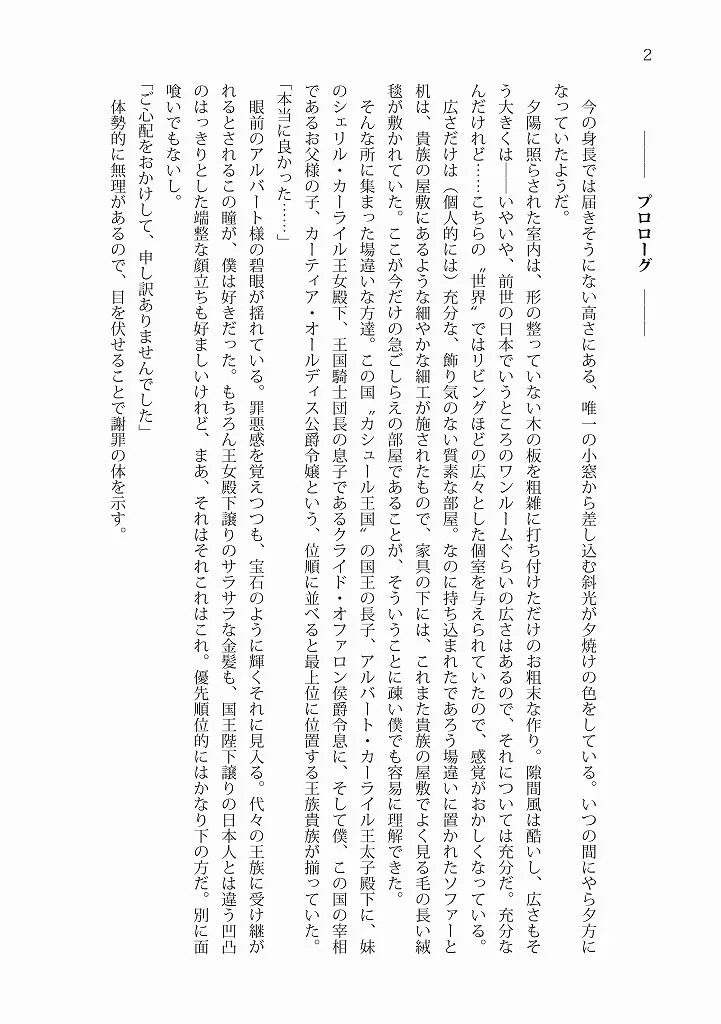 2
――― プロローグ ―――
今の身長では届きそうにない高さにある、唯一の小窓から差し込む斜光が夕焼けの色をしている。いつの間にやら夕方に
なっていたようだ。
夕陽に照らされた室内は、形の整っていない木の板を粗雑に打ち付けただけのお粗末な作り。隙間風は酷いし、広さもそ
う大きくは――いやいや、前世の日本でいうところのワンルームぐらいの広さはあるので、それについては充分だ。充分な
んだけれど……こちらの〝世界〟ではリビングほどの広々とした個室を与えられていたので、感覚がおかしくなっている。
広さだけは（個人的には）充分な、飾り気のない質素な部屋。なのに持ち込まれたであろう場違いに置かれたソファーと
机は、貴族の屋敷にあるような細やかな細工が施されたもので、家具の下には、これまた貴族の屋敷でよく見る毛の長い絨
毯が敷かれていた。ここが今だけの急ごしらえの部屋であることが、そういうことに疎い僕でも容易に理解できた。
そんな所に集まった場違いな方達。この国〝カシュール王国〟の国王の長子、アルバート・カーライル王太子殿下に、妹
のシェリル・カーライル王女殿下、王国騎士団長の息子であるクライド・オファロン侯爵令息に、そして僕、この国の宰相
であるお父様の子、カーティア・オールディス公爵令嬢という、位順に並べると最上位に位置する王族貴族が揃っていた。
「本当に良かった……」
眼前のアルバート様の碧眼が揺れている。罪悪感を覚えつつも、宝石のように輝くそれに見入る。代々の王族に受け継が
れるとされるこの瞳が、僕は好きだった。もちろん王女殿下譲りのサラサラな金髪も、国王陛下譲りの日本人とは違う凹凸
のはっきりとした端整な顔立ちも好ましいけれど、まあ、それはそれこれはこれ。優先順位的にはかなり下の方だ。別に面
喰いでもないし。
「ご心配をおかけして、申し訳ありませんでした」
体勢的に無理があるので、目を伏せることで謝罪の体を示す。